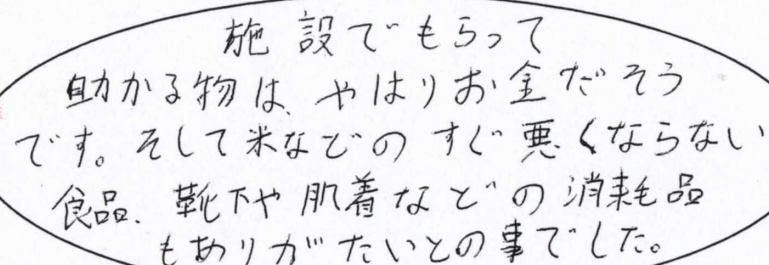 施設でもらって
助かる物は、やはりお金だそう
です。そして米などのすぐ悪くならない
食品、靴下や肌着などの消耗品
もありがたいとの事でした。